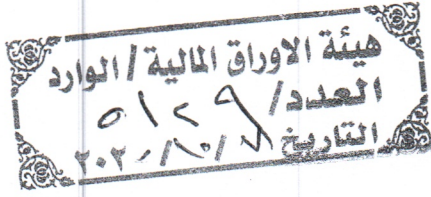 هيئة الاوراق المالية / الوارد
العدد/ ٥١٢٩
التاريخ ٨/١٠/٢٠٢٠